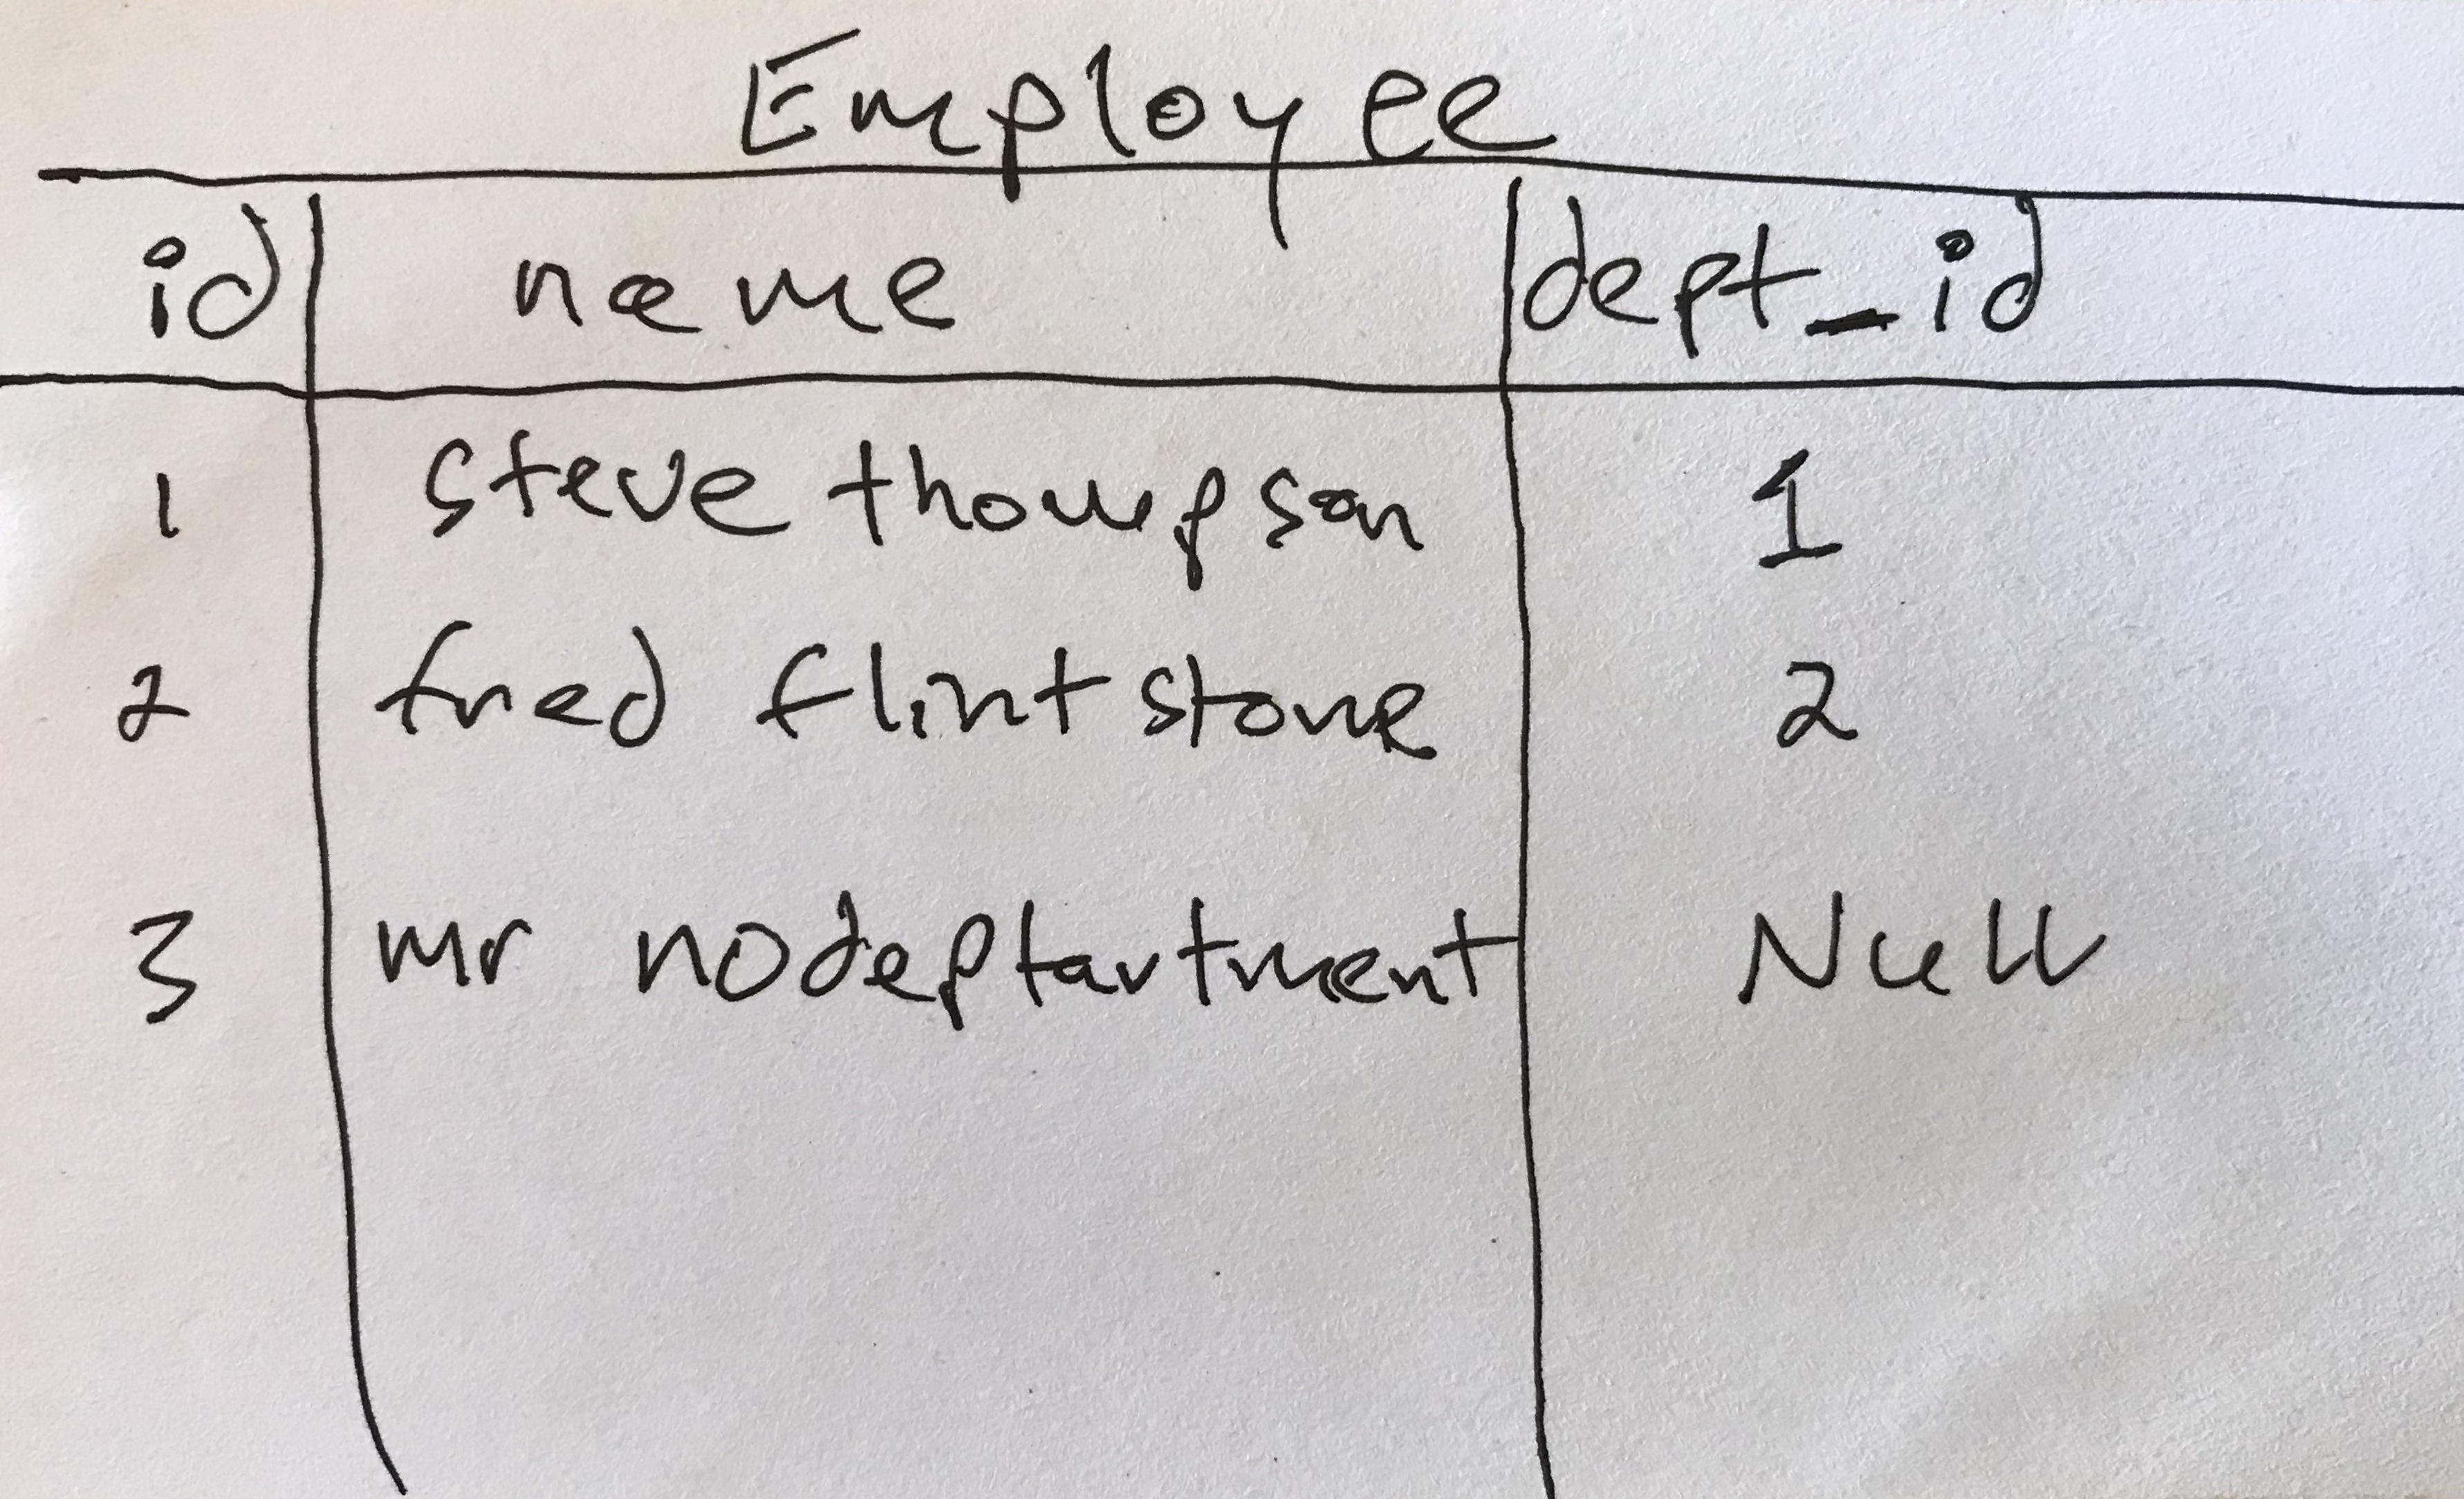 Employee
id name dept_id
1 steve thompson 1
2 fred flintstone 2
3 mr nodeptartment Null